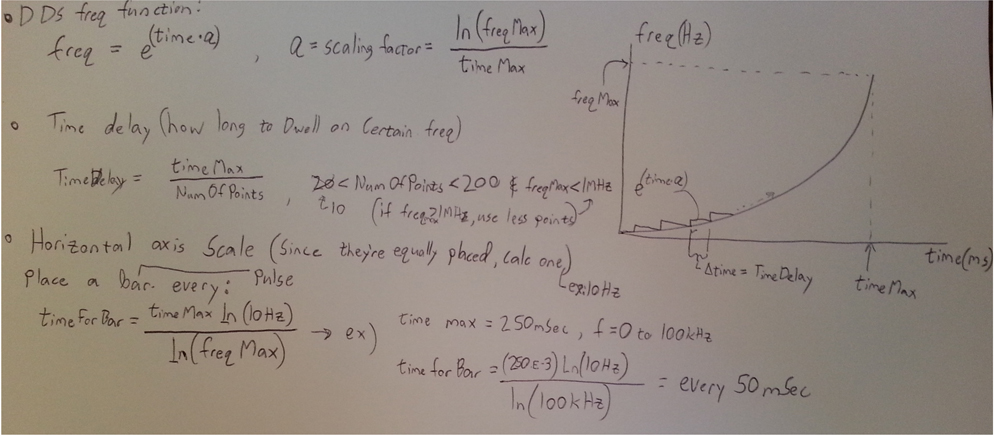 • DDS freq function:
freq = e^(time·a) , a = scaling factor = ln(freqMax) / timeMax
• Time delay (how long to Dwell on Certain freq)
TimeDelay = timeMax / NumOfPoints , 20 < NumOfPoints < 200 & freqMax < 1MHz
10 (if freq≥1MHz, use less points)
• Horizontal axis Scale (Since they're equally placed, calc one)
ex: 10Hz
Place a bar every: Pulse
timeForBar = timeMax ln(10Hz) / ln(freqMax) → ex)
time max = 250mSec , f = 0 to 100kHz
time for Bar = (250E-3) Ln(10Hz) / ln(100kHz) = every 50mSec
freq(Hz)
freqMax
e^(time·a)
Δtime = TimeDelay
timeMax
time(ms)